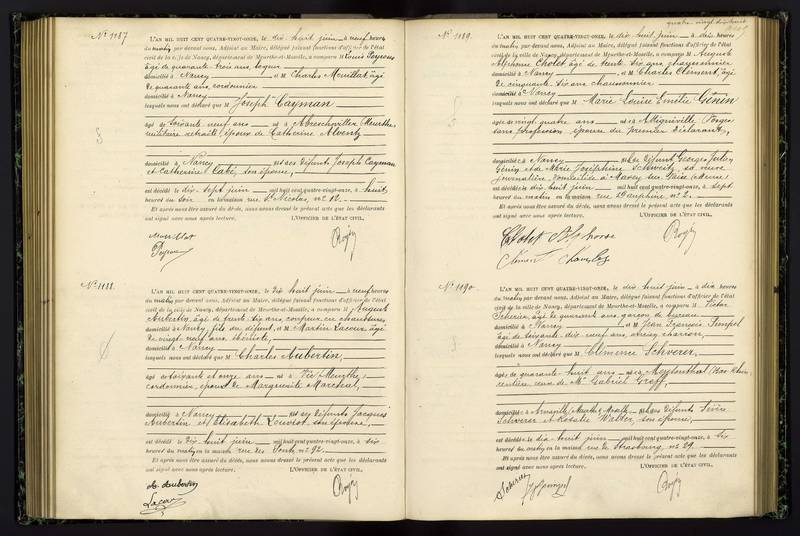 N° 1187
L'AN MIL HUIT CENT QUATRE-VINGT-ONZE, le dix huit juin à neuf heures
du matin par devant nous, Adjoint au Maire, délégué faisant fonctions d'officier de l'état
civil de la ville de Nancy, département de Meurthe-et-Moselle, a comparu M Louis Peyrous
âgé de quarante trois ans,
domicilié à Nancy et M Charles Meuillat, âgé
de quarante ans, cordonnier
domicilié à Nancy
lesquels nous ont déclaré que M Joseph Cayman
âgé de soixante neuf ans né à Abreschwiller Meurthe,
militaire retraité, époux de Catherine Alventz
domicilié à Nancy est ses défunts Joseph Cayman
et Catherine Labé, son épouse,
est décédé le dix sept juin mil huit cent quatre-vingt-onze, à huit
heures du soir en la maison rue St Nicolas, n° 12.
Et après nous être assuré du décès, nous avons dressé le présent acte que les déclarants
ont signé avec nous après lecture. L'OFFICIER DE L'ÉTAT CIVIL,
N° 1188.
L'AN MIL HUIT CENT QUATRE-VINGT-ONZE, le dix huit juin à neuf heures
du matin par devant nous, Adjoint au Maire, délégué faisant fonctions d'officier de l'état
civil de la ville de Nancy, département de Meurthe-et-Moselle, a comparu M August
Aubertin, âgé de trente six ans, coupeur en chaussures,
domicilié à Nancy, fils du défunt, et M Martin Lacour, âgé
de vingt neuf ans, ébéniste,
domicilié à Nancy
lesquels nous ont déclaré que M Charles Aubertin,
âgé de soixante et onze ans né à Vic (Meurthe),
cordonnier, époux de Marguerite Marchal,
domicilié à Nancy est ses défunts Jacques
Aubertin et Elisabeth Louviot, son épouse,
est décédé le dix huit juin mil huit cent quatre-vingt-onze, à six
heures du matin en la maison rue des Ponts n° 92.
Et après nous être assuré du décès, nous avons dressé le présent acte que les déclarants
ont signé avec nous après lecture. L'OFFICIER DE L'ÉTAT CIVIL,
Ch. Aubertin
Lacour
quatre vingt dix huit
N° 1189.
L'AN MIL HUIT CENT QUATRE-VINGT-ONZE, le dix huit juin à dix heures
du matin par devant nous, Adjoint au Maire, délégué faisant fonctions d'officier de l'état
civil de la ville de Nancy, département de Meurthe-et-Moselle, a comparu M Auguste
Alphonse Cholet âgé de trente six ans,
domicilié à Nancy et M Charles Clement, âgé
de cinquante six ans chaussonnier
domicilié à Nancy
lesquels nous ont déclaré que M Marie Louise Emilie Génin
âgée de vingt quatre ans née à Attignéville, Vosges
sans profession épouse du premier déclarant,
domiciliée à Nancy est du défunt Georges Jules
Génin et de Marie Joséphine Schweitz, sa veuve
journalière, domiciliée à
est décédée le dix huit juin mil huit cent quatre-vingt-onze, à sept
heures du matin en la maison rue Dauphine n° 2.
Et après nous être assuré du décès, nous avons dressé le présent acte que les déclarants
ont signé avec nous après lecture. L'OFFICIER DE L'ÉTAT CIVIL,
Cholet Alphonse
Clément Charles
N° 1190.
L'AN MIL HUIT CENT QUATRE-VINGT-ONZE, le dix huit juin à dix heures
du matin par devant nous, Adjoint au Maire, délégué faisant fonctions d'officier de l'état
civil de la ville de Nancy, département de Meurthe-et-Moselle, a comparu M Victor
Scherier, âgé de quarante ans, garçon de bureau
domicilié à Nancy et M Jean François Pimpel
âgé de soixante dix neuf ans, charron,
domicilié à Nancy
lesquels nous ont déclaré que M Clémence Schverer,
âgée de quarante huit ans née à (Bas Rhin),
rentière, veuve de Mr Gabriel Graff,
domiciliée à (Meurthe & Moselle) est des défunts
Schverer et Rosalie Walter, son épouse,
est décédée le dix huit juin mil huit cent quatre-vingt-onze, à six
heures du matin en la maison rue de Strasbourg, n° 29.
Et après nous être assuré du décès, nous avons dressé le présent acte que les déclarants
ont signé avec nous après lecture. L'OFFICIER DE L'ÉTAT CIVIL,